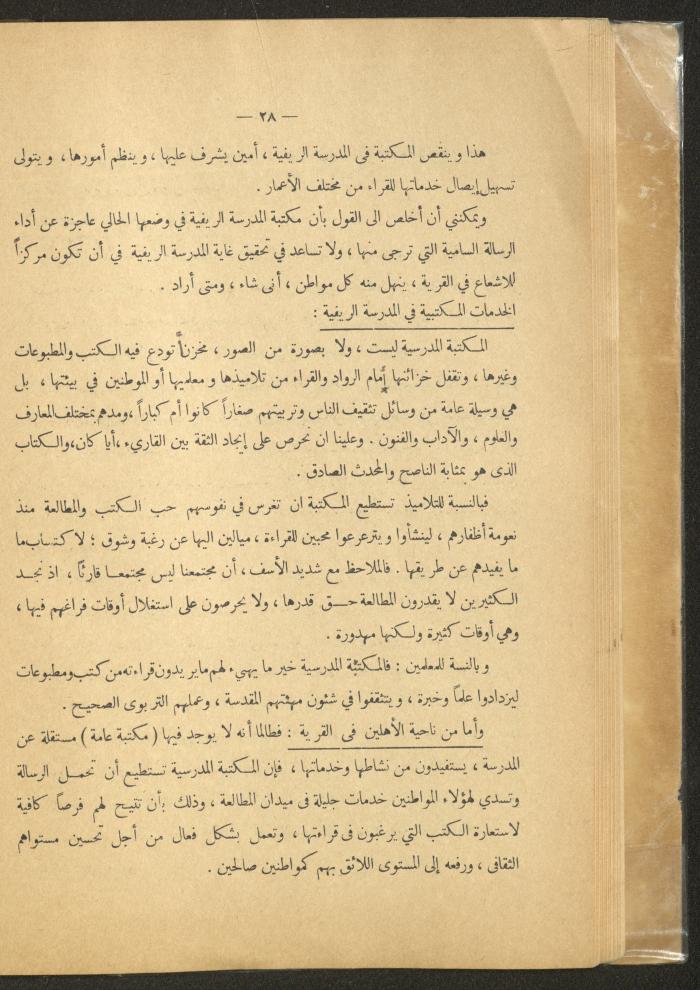 — ٢٨ —
هذا وينقص المكتبة فى المدرسة الريفية ، أمين يشرف عليها ، وينظم أمورها ، ويتولى
تسهيل إيصال خدماتها للقراء من مختلف الأعمار .
ويمكنني أن أخلص الى القول بأن مكتبة المدرسة الريفية في وضعها الحالي عاجزة عن أداء
الرسالة السامية التي ترجى منها ، ولا تساعد في تحقيق غاية المدرسة الريفية في أن تكون مركزاً
للاشعاع في القرية ، ينهل منه كل مواطن ، أنى شاء ، ومتى أراد .
الخدمات المكتبية في المدرسة الريفية :
المكتبة المدرسية ليست ، ولا بصورة من الصور ، مخزناً تودع فيه الكتب والمطبوعات
وغيرها ، وتقفل خزائنها أمام الرواد والقراء من تلاميذها ومعلميها أو الموطنين في بيئتها ، بل
هي وسيلة عامة من وسائل تثقيف الناس وتربيتهم صغاراً كانوا أم كباراً ،ومدهم بمختلف المعارف
والعلوم ، والآداب والفنون . وعلينا ان نحرص على إيجاد الثقة بين القاريء ،أيا كان،والكتاب
الذى هو بمثابة الناصح والمحدث الصادق .
فبالنسبة للتلاميذ تستطيع المكتبة ان تغرس في نفوسهم حب الكتب والمطالعة منذ
نعومة أظفارهم ، لينشأوا ويترعرعوا محبين للقراءة ، ميالين اليها عن رغبة وشوق ؛ لاكتساب ما
ما يفيدهم عن طريقها . فالملاحظ مع شديد الأسف ، أن مجتمعنا ليس مجتمعا قارئاً ، اذ نجد
الكثيرين لا يقدرون المطالعة حق قدرها ، ولا يحرصون على استغلال أوقات فراغهم فيها ،
وهي أوقات كثيرة ولكنها مهدورة .
وبالنسة للمعلمين : فالمكتبة المدرسية خير ما يهيء لهم ما يريدون قراءته من كتب ومطبوعات
ليزدادوا علماً وخبرة ، ويتثقفوا في شئون مهنتهم المقدسة ، وعملهم التربوى الصحيح .
وأما من ناحية الأهلين فى القرية : فطالما أنه لا يوجد فيها ( مكتبة عامة ) مستقلة عن
المدرسة ، يستفيدون من نشاطها وخدماتها ، فإن المكتبة المدرسية تستطيع أن تحمل الرسالة
وتسدي لهؤلاء المواطنين خدمات جليلة فى ميدان المطالعة ، وذلك بأن تتيح لهم فرصاً كافية
لاستعارة الكتب التي يرغبون فى قراءتها ، وتعمل بشكل فعال من أجل تحسين مستواهم
الثقافى ، ورفعه إلى المستوى اللائق بهم كمواطنين صالحين .